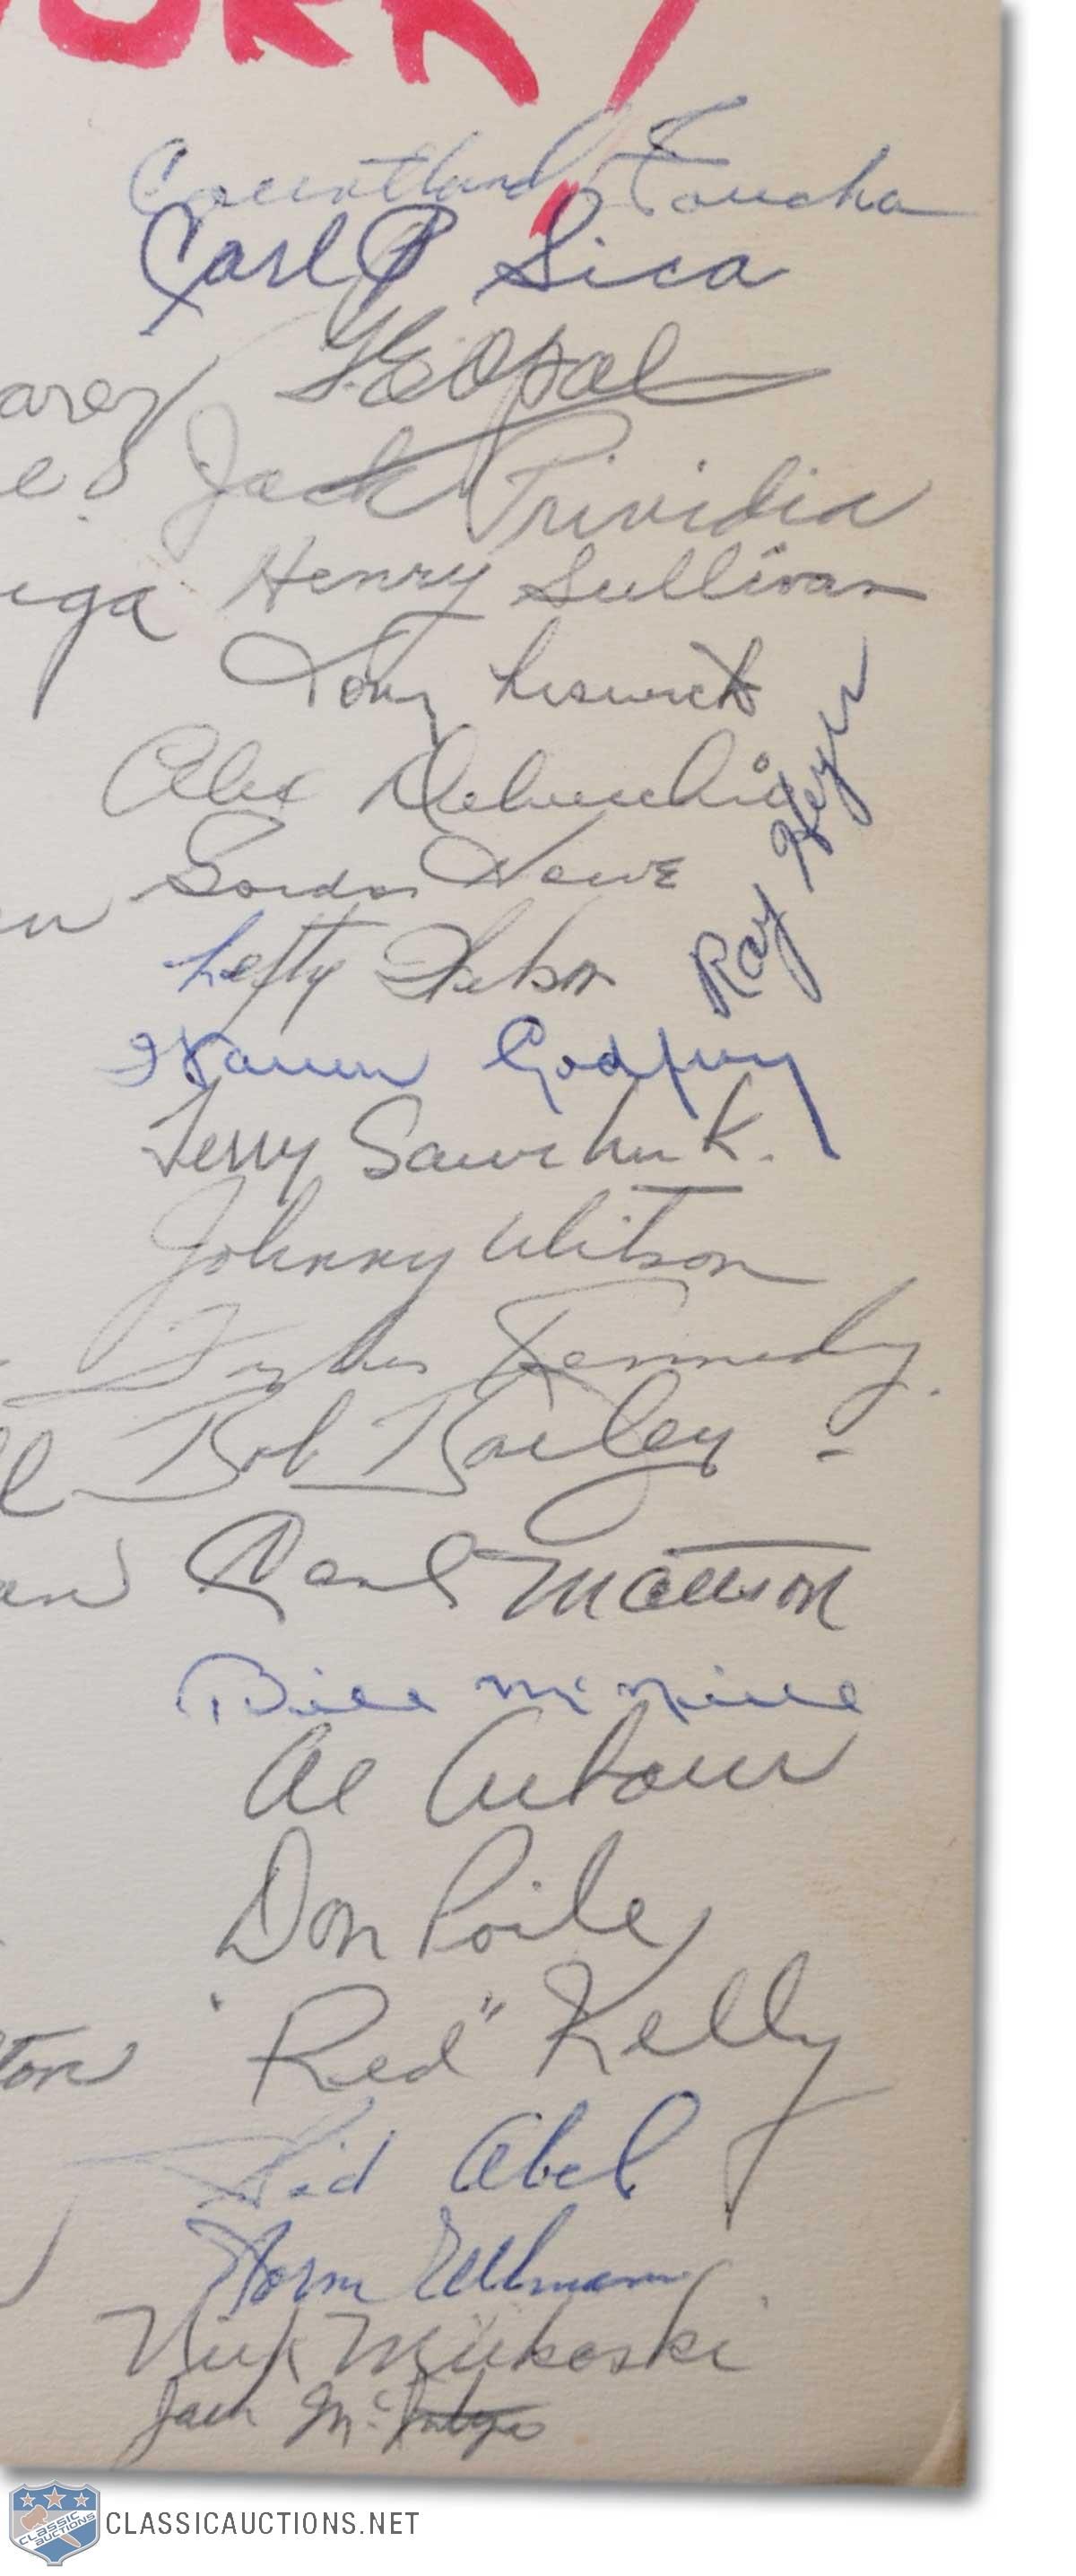 ORK!
Carl P Sica
arez
Jack Prividia
ega Henry Sullivan
Tony Leswick
Alex Delvecchio
Gordon Howe
Ray Heyn
Lefty Wilson
Warren Godfrey
Terry Sawchuk.
Johnny Wilson
Forbes Kennedy.
Bob Bailey
Carl Mattson
Bill McNeill
Al Arbour
Don Poile
ton "Red" Kelly
Sid Abel
Norm Ullman
Nick Mickoski
Jack McIntyre
CLASSIC AUCTIONS
CLASSICAUCTIONS.NET